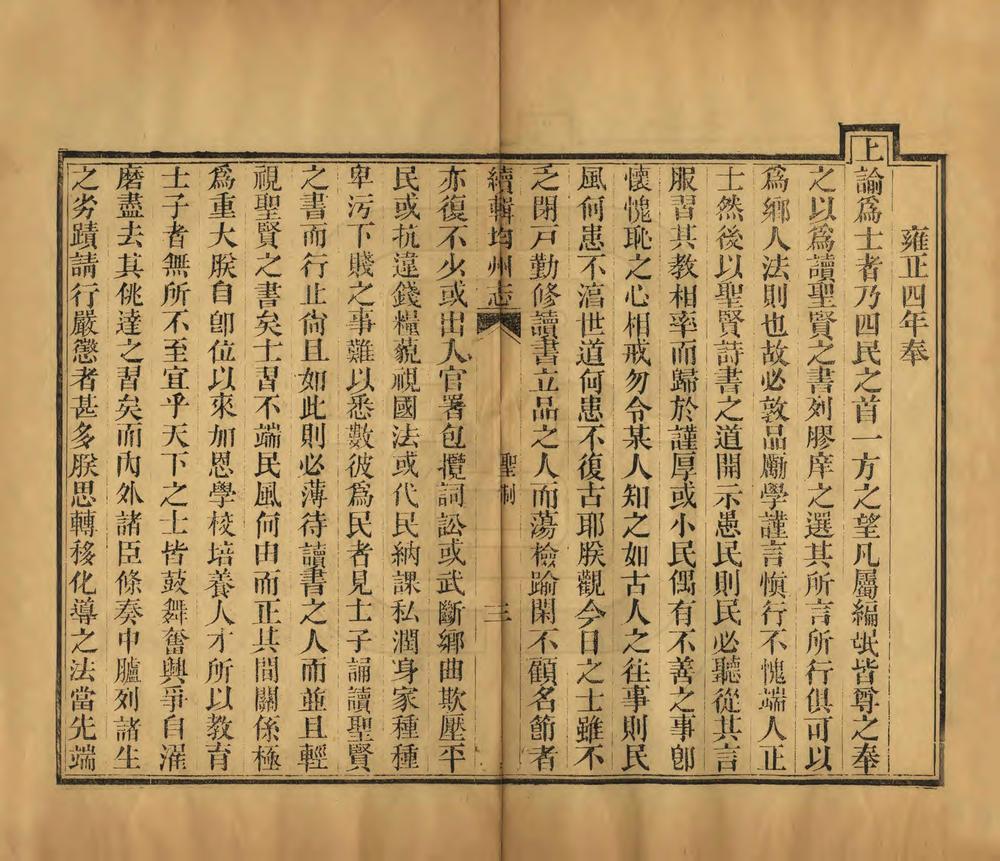 雍正四年奉
上諭爲士者乃四民之首一方之望凡屬編氓皆尊之奉
之以爲讀聖賢之書列膠庠之選其所言所行俱可以
爲鄉人法則也故必敦品勵學謹言愼行不愧端人正
士然後以聖賢詩書之道開示愚民則民必聽從其言
服習其教相率而歸於謹厚或小民偶有不善之事卽
懷愧恥之心相戒勿令某人知之如古人之往事則民
風何患不湻世道何患不復古耶朕觀今日之士雖不
乏閉戸勤修讀書立品之人而蕩檢踰閑不顧名節者
續輯均州志
聖制
三
亦復不少或出入官署包攬詞訟或武斷鄉曲欺壓平
民或抗違錢糧藐視國法或代民納課私潤身家種種
卑污下賤之事難以悉數彼爲民者見士子誦讀聖賢
之書而行止尙且如此則必薄待讀書之人而並且輕
視聖賢之書矣士習不端民風何由而正其間關係極
爲重大朕自卽位以來加恩學校培養人才所以教育
士子者無所不至宜乎天下之士皆鼓舞奮興爭自濯
磨盡去其佻達之習矣而內外諸臣條奏中臚列諸生
之劣蹟請行嚴懲者甚多朕思轉移化導之法當先端